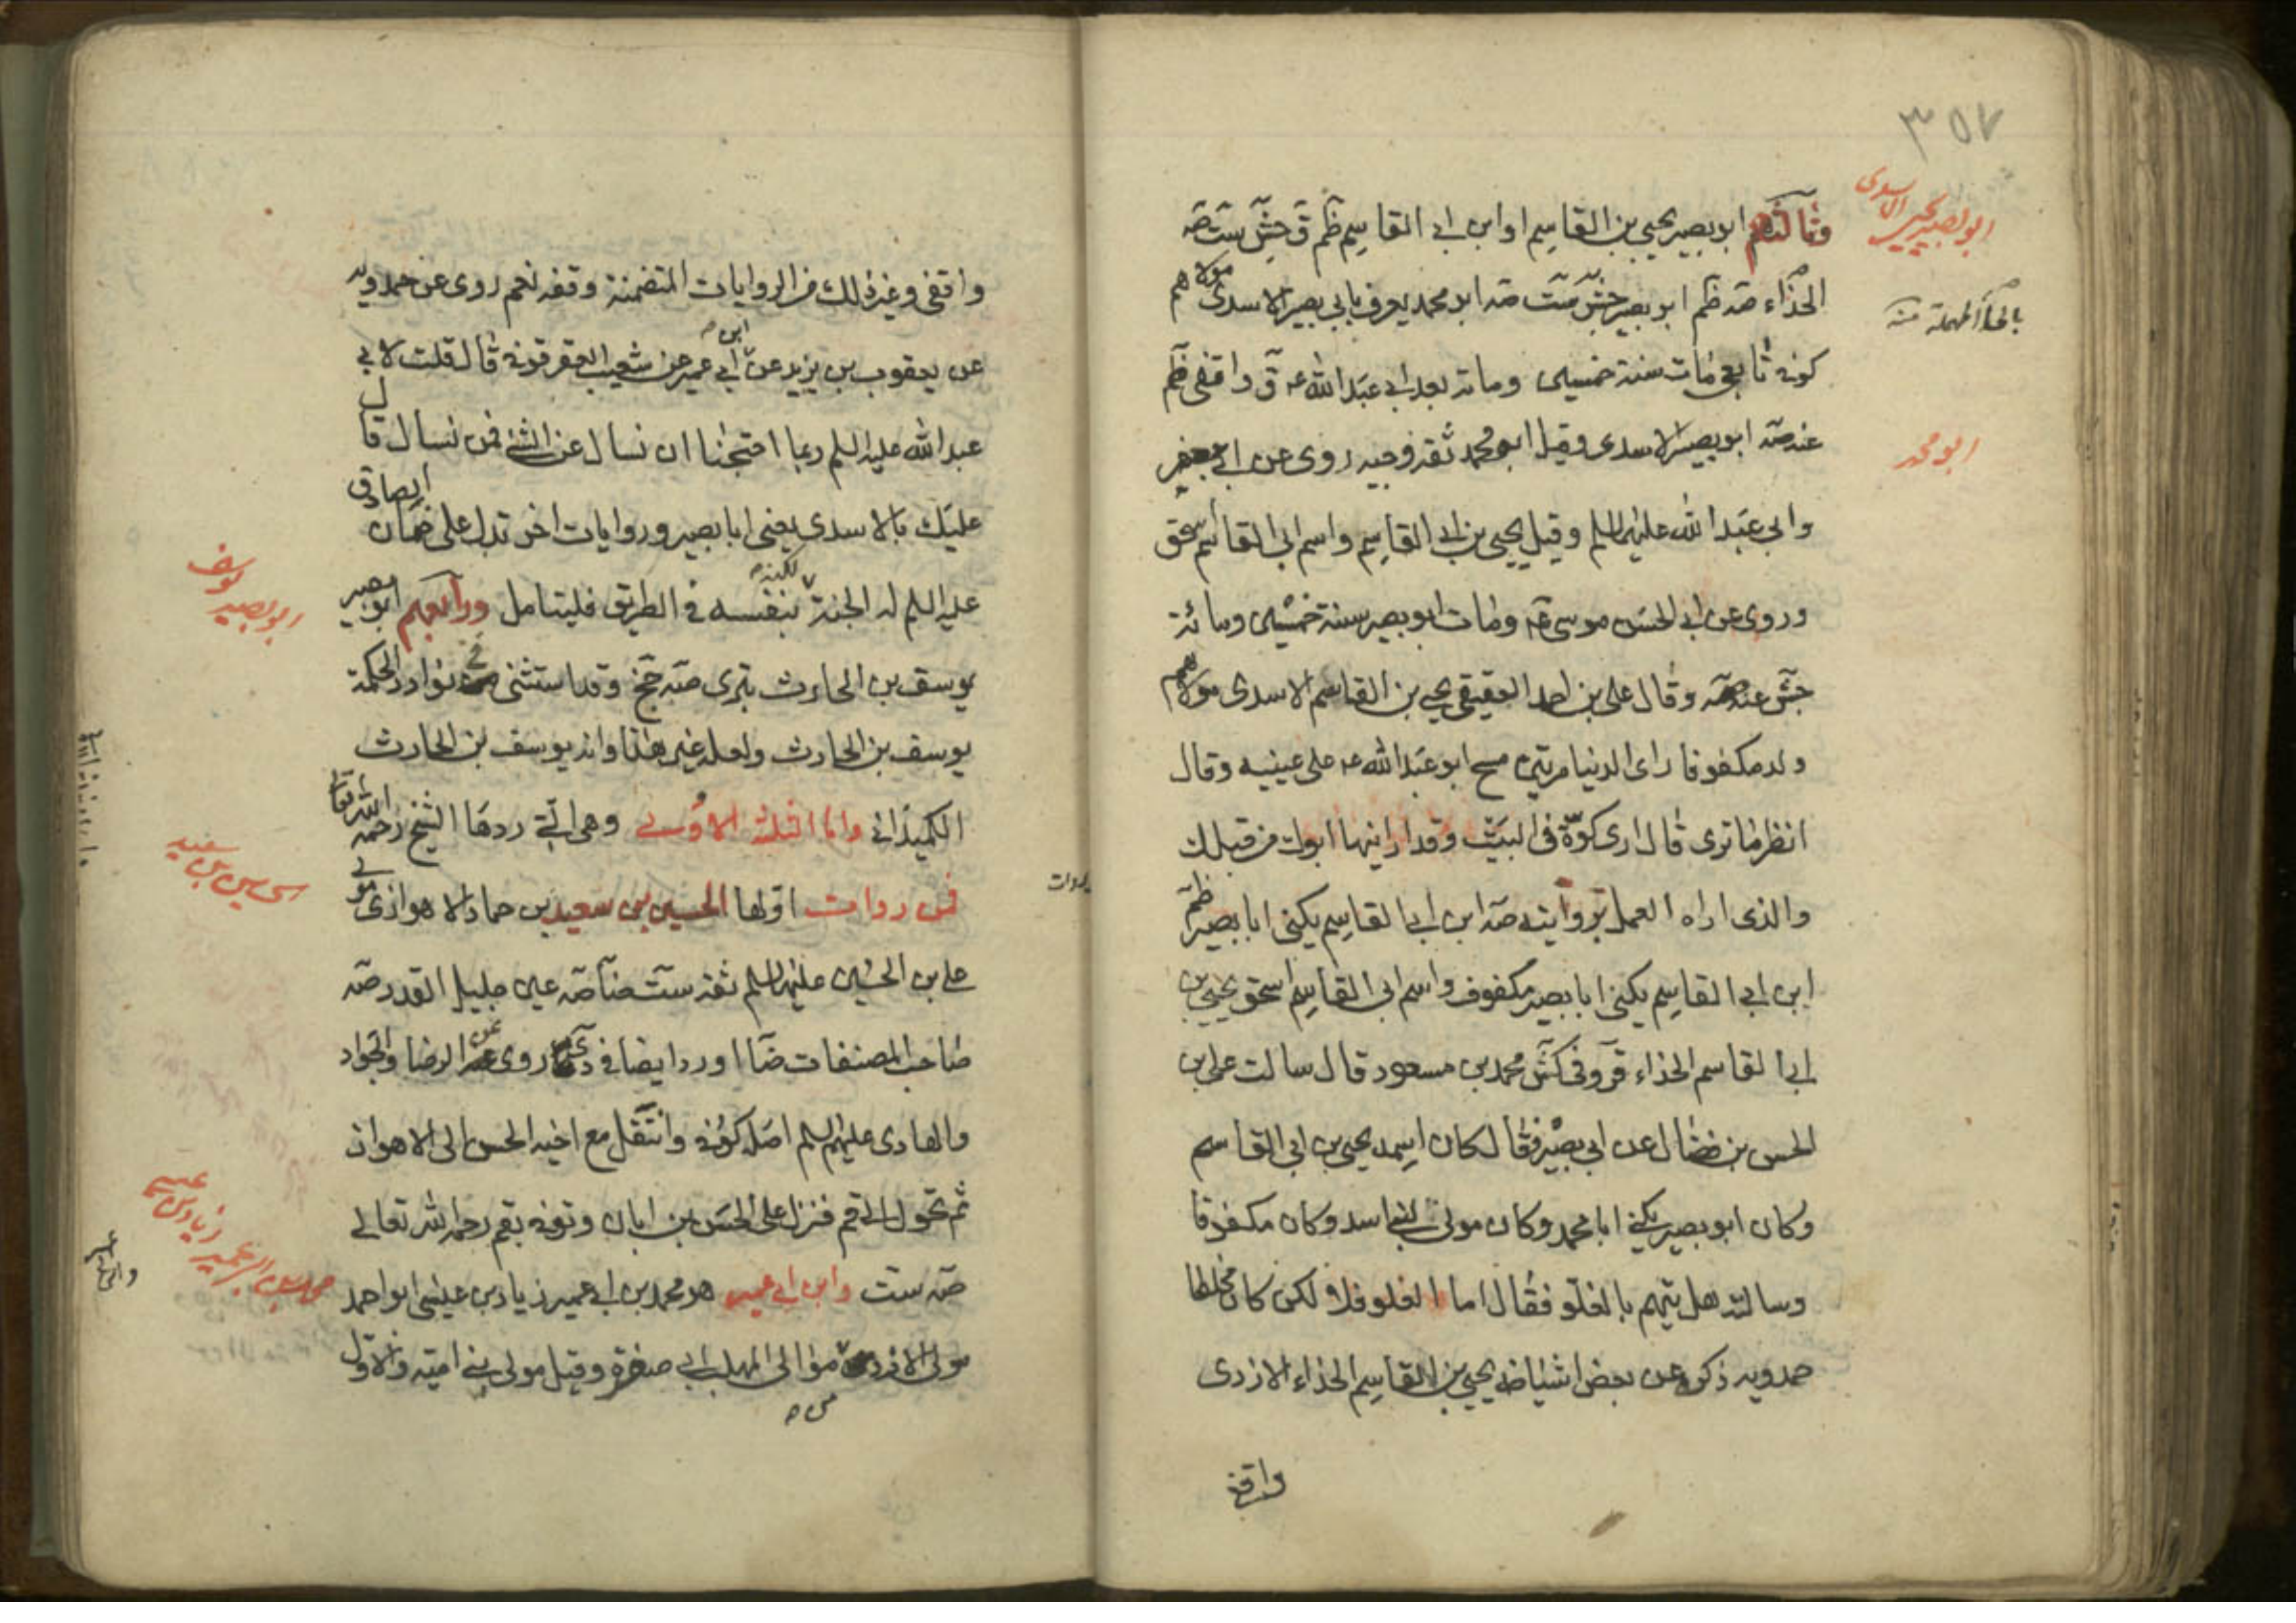 ٣٥٧
ابو بصير يحيى الاسدى
وثالثهم ابو بصير يحيى بن القاسم او ابن ابى القاسم ظم ق جش ست صه
الحذاء صه ظم ابو بصير جش ست صه ابو محمد يعرف بابى بصير الاسدى مولاهم
بالحاء المهملة منه
كوفى تابعى مات سنة خمسين ومائة بعد ابى عبد الله ع ق واقفى ظم
عند صه ابو بصير الاسدى وقيل ابو محمد ثقة وجيه روى عن ابى جعفر
ابو محمد
وابى عبد الله عليهما السلم وقيل يحيى بن ابى القاسم واسم ابى القاسم اسحق
وروى عن ابى الحسن موسى ع ومات ابو بصير سنة خمسين ومائة
جش عند صه وقال على بن احمد العقيقى يحيى بن القاسم الاسدى مولاهم
ولد مكفوفا راى الدنيا مرتين مسح ابو عبد الله ع على عينيه وقال
انظر ما ترى قال ارى كوة فى البيت وقد ارانيها ابوك من قبلك
والذى اراه العمل بروايته صه ابن ابى القاسم يكنى ابا بصير ظم
ابن ابى القاسم يكنى ابا بصير مكفوف واسم ابى القاسم اسحق يحيى بن
ابى القاسم الحذاء قر وفى كش محمد بن مسعود قال سالت على بن
الحسن بن فضال عن ابى بصير فقال كان اسمه يحيى بن ابى القاسم
وكان ابو بصير يكنى ابا محمد وكان مولى لبنى اسد وكان مكفوفا
وسالته هل يتهم بالغلو فقال اما الغلو فلا ولكن كان مخلطا
حمدويه ذكره عن بعض اشياخه يحيى بن القاسم الحذاء الازدى
واقفى
واقفى وغير ذلك من الروايات المتضمنة وقفه نعم روى عن حمدويه
عن يعقوب بن يزيد عن ابن ابى عمير عن شعيب العقرقوفى قال قلت لابى
عبد الله عليه السلم ربما احتجنا ان نسال عن الشئ فمن نسال قال
عليك بالاسدى يعنى ابا بصير وروايات اخر تدل على ضمان الصادق
عليه السلم له الجنة لكنه بنفسه فى الطريق فليتامل ورابعهم ابو بصير
ابو بصير يوسف
يوسف بن الحارث بترى صه جخ وقد استثنى من نوادر الحكمة
يوسف بن الحارث ولعله غير هذا وانه يوسف بن الحارث
الكميدانى واما الثلثة الاولى وهى التى ردها الشيخ رحمه الله تعالى
فمن روات اولها الحسين بن سعيد بن حماد الاهوازى مولى
حسين بن سعيد
على بن الحسين عليهما السلم ثقة ست ضا صه عين جليل القدر صه
صاحب المصنفات ضا اورد ايضا فى دى روى عن الرضا والجواد
والهادى عليهم السلم اصله كوفى وانتقل مع اخيه الحسن الى الاهواز
ثم تحول الى قم فنزل على الحسن بن ابان وتوفى بقم رحمه الله تعالى
صه ست وابن ابى عمير هو محمد بن ابى عمير زياد بن عيسى ابو احمد
محمد بن ابى عمير زياد بن عيسى
مولى الازد من موالى المهلب بن ابى صفرة وقيل مولى بنى امية والاول